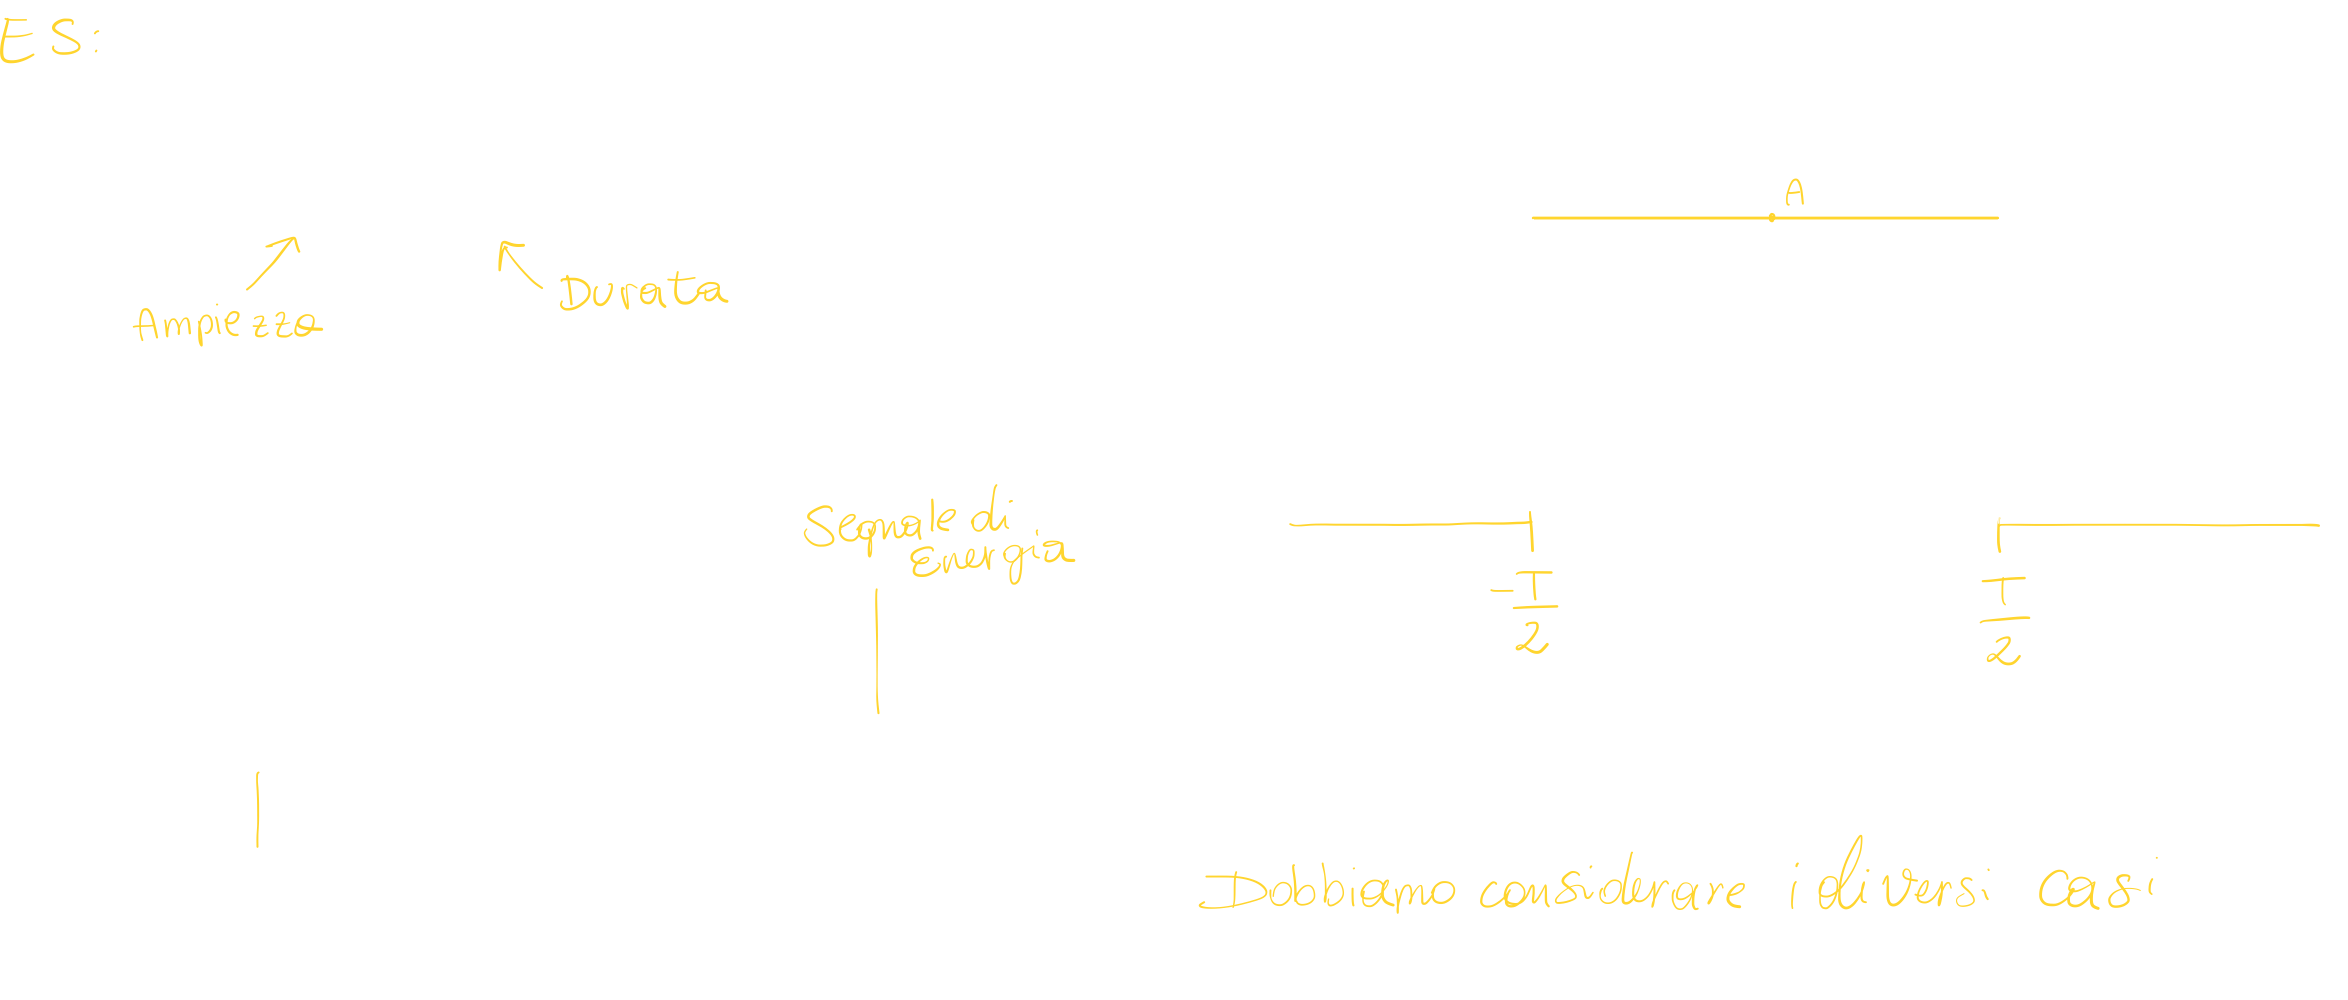 ES:
A
Ampiezza
Durata
Segnale di
Energia
-T/2
T/2
Dobbiamo considerare i diversi casi